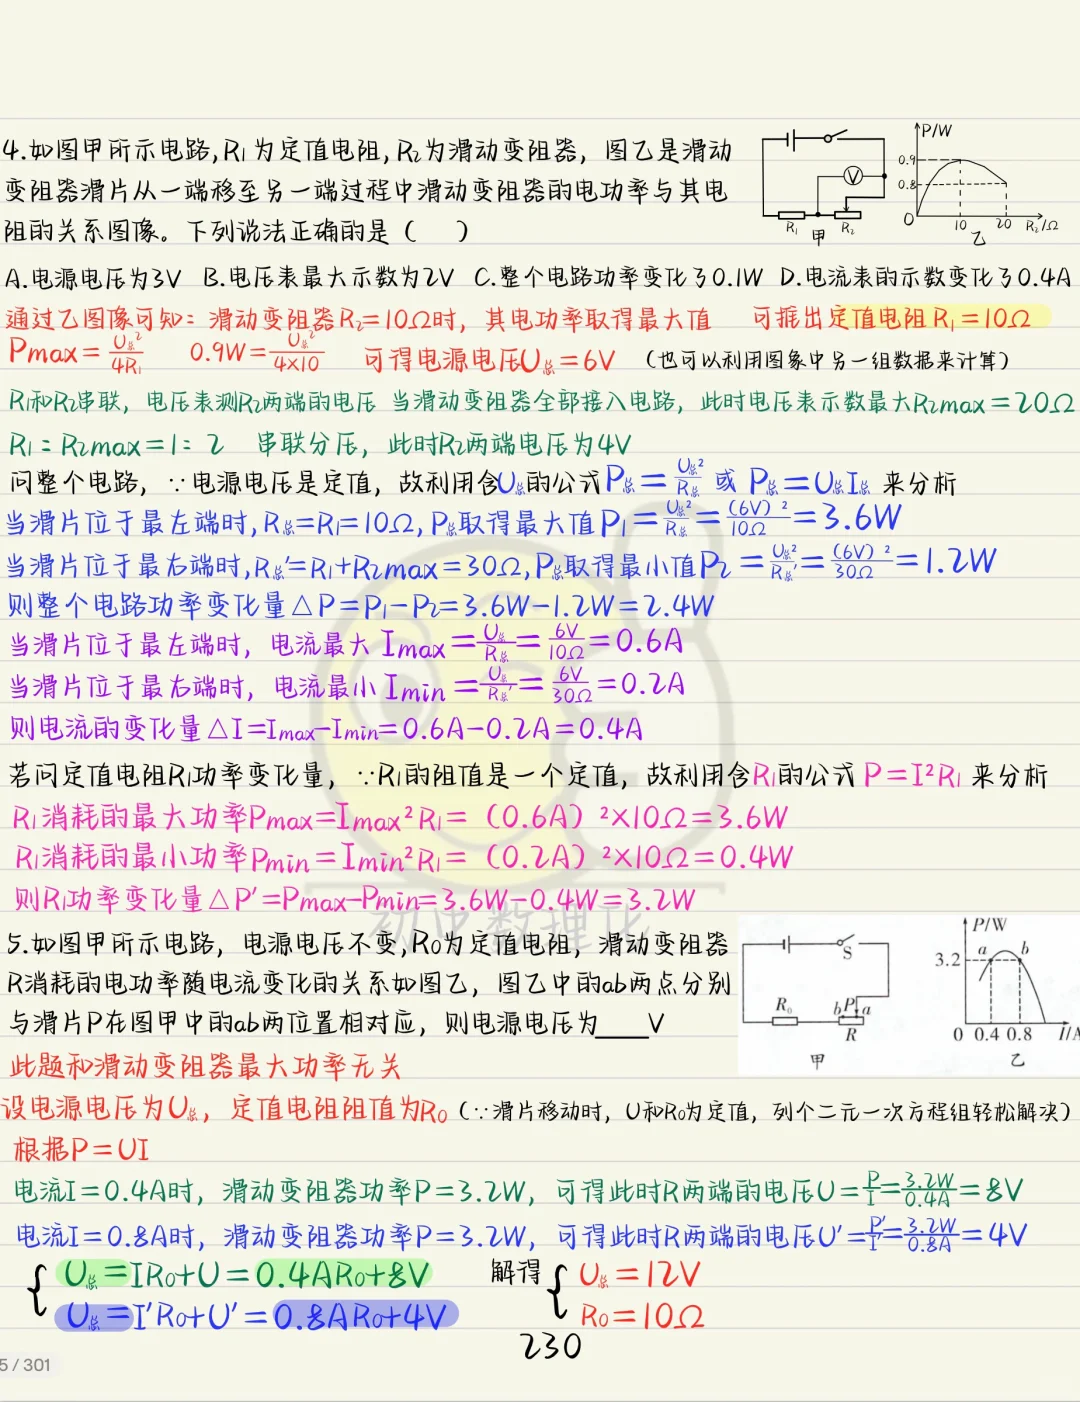 4.如图甲所示电路,R₁为定值电阻,R₂为滑动变阻器，图乙是滑动
变阻器滑片从一端移至另一端过程中滑动变阻器的电功率与其电
阻的关系图像。下列说法正确的是（　　）
P/W
0.9
0.8
0
10
20
R₂/Ω
乙
V
R₁
R₂
甲
A.电源电压为3V B.电压表最大示数为2V C.整个电路功率变化了0.1W D.电流表的示数变化了0.4A
通过乙图像可知：滑动变阻器R₂=10Ω时，其电功率取得最大值 可推出定值电阻R₁=10Ω
Pmax=U总²/4R₁ 0.9W=U总²/4×10 可得电源电压U总=6V （也可以利用图象中另一组数据来计算）
R₁和R₂串联，电压表测R₂两端的电压 当滑动变阻器全部接入电路，此时电压表示数最大R₂max=20Ω
R₁：R₂max=1：2 串联分压，此时R₂两端电压为4V
问整个电路，∵电源电压是定值，故利用含U总的公式P总=U总²/R总 或 P总=U总I总 来分析
当滑片位于最左端时,R总=R₁=10Ω,P总取得最大值P₁=U总²/R总=(6V)²/10Ω=3.6W
当滑片位于最右端时,R总′=R₁+R₂max=30Ω,P总取得最小值P₂=U总²/R总′=(6V)²/30Ω=1.2W
则整个电路功率变化量△P=P₁-P₂=3.6W-1.2W=2.4W
当滑片位于最左端时，电流最大 Imax=U总/R总=6V/10Ω=0.6A
当滑片位于最右端时，电流最小 Imin=U总/R总′=6V/30Ω=0.2A
则电流的变化量△I=Imax-Imin=0.6A-0.2A=0.4A
若问定值电阻R₁功率变化量，∵R₁的阻值是一个定值，故利用含R₁的公式 P=I²R₁ 来分析
R₁消耗的最大功率Pmax=Imax²R₁=（0.6A）²×10Ω=3.6W
R₁消耗的最小功率Pmin=Imin²R₁=（0.2A）²×10Ω=0.4W
则R₁功率变化量△P′=Pmax-Pmin=3.6W-0.4W=3.2W
初中数理化
5.如图甲所示电路，电源电压不变,R₀为定值电阻，滑动变阻器
R消耗的电功率随电流变化的关系如图乙，图乙中的ab两点分别
与滑片P在图甲中的ab两位置相对应，则电源电压为____V
S
R₀
b P a
R
甲
P/W
a b
3.2
0 0.4 0.8 I/A
乙
此题和滑动变阻器最大功率无关
设电源电压为U总，定值电阻阻值为R₀（∵滑片移动时，U和R₀为定值，列个二元一次方程组轻松解决）
根据P=UI
电流I=0.4A时，滑动变阻器功率P=3.2W，可得此时R两端的电压U=P/I=3.2W/0.4A=8V
电流I=0.8A时，滑动变阻器功率P=3.2W，可得此时R两端的电压U′=P′/I′=3.2W/0.8A=4V
U总=IR₀+U=0.4AR₀+8V 解得 U总=12V
U总=I′R₀+U′=0.8AR₀+4V R₀=10Ω
230
5 / 301